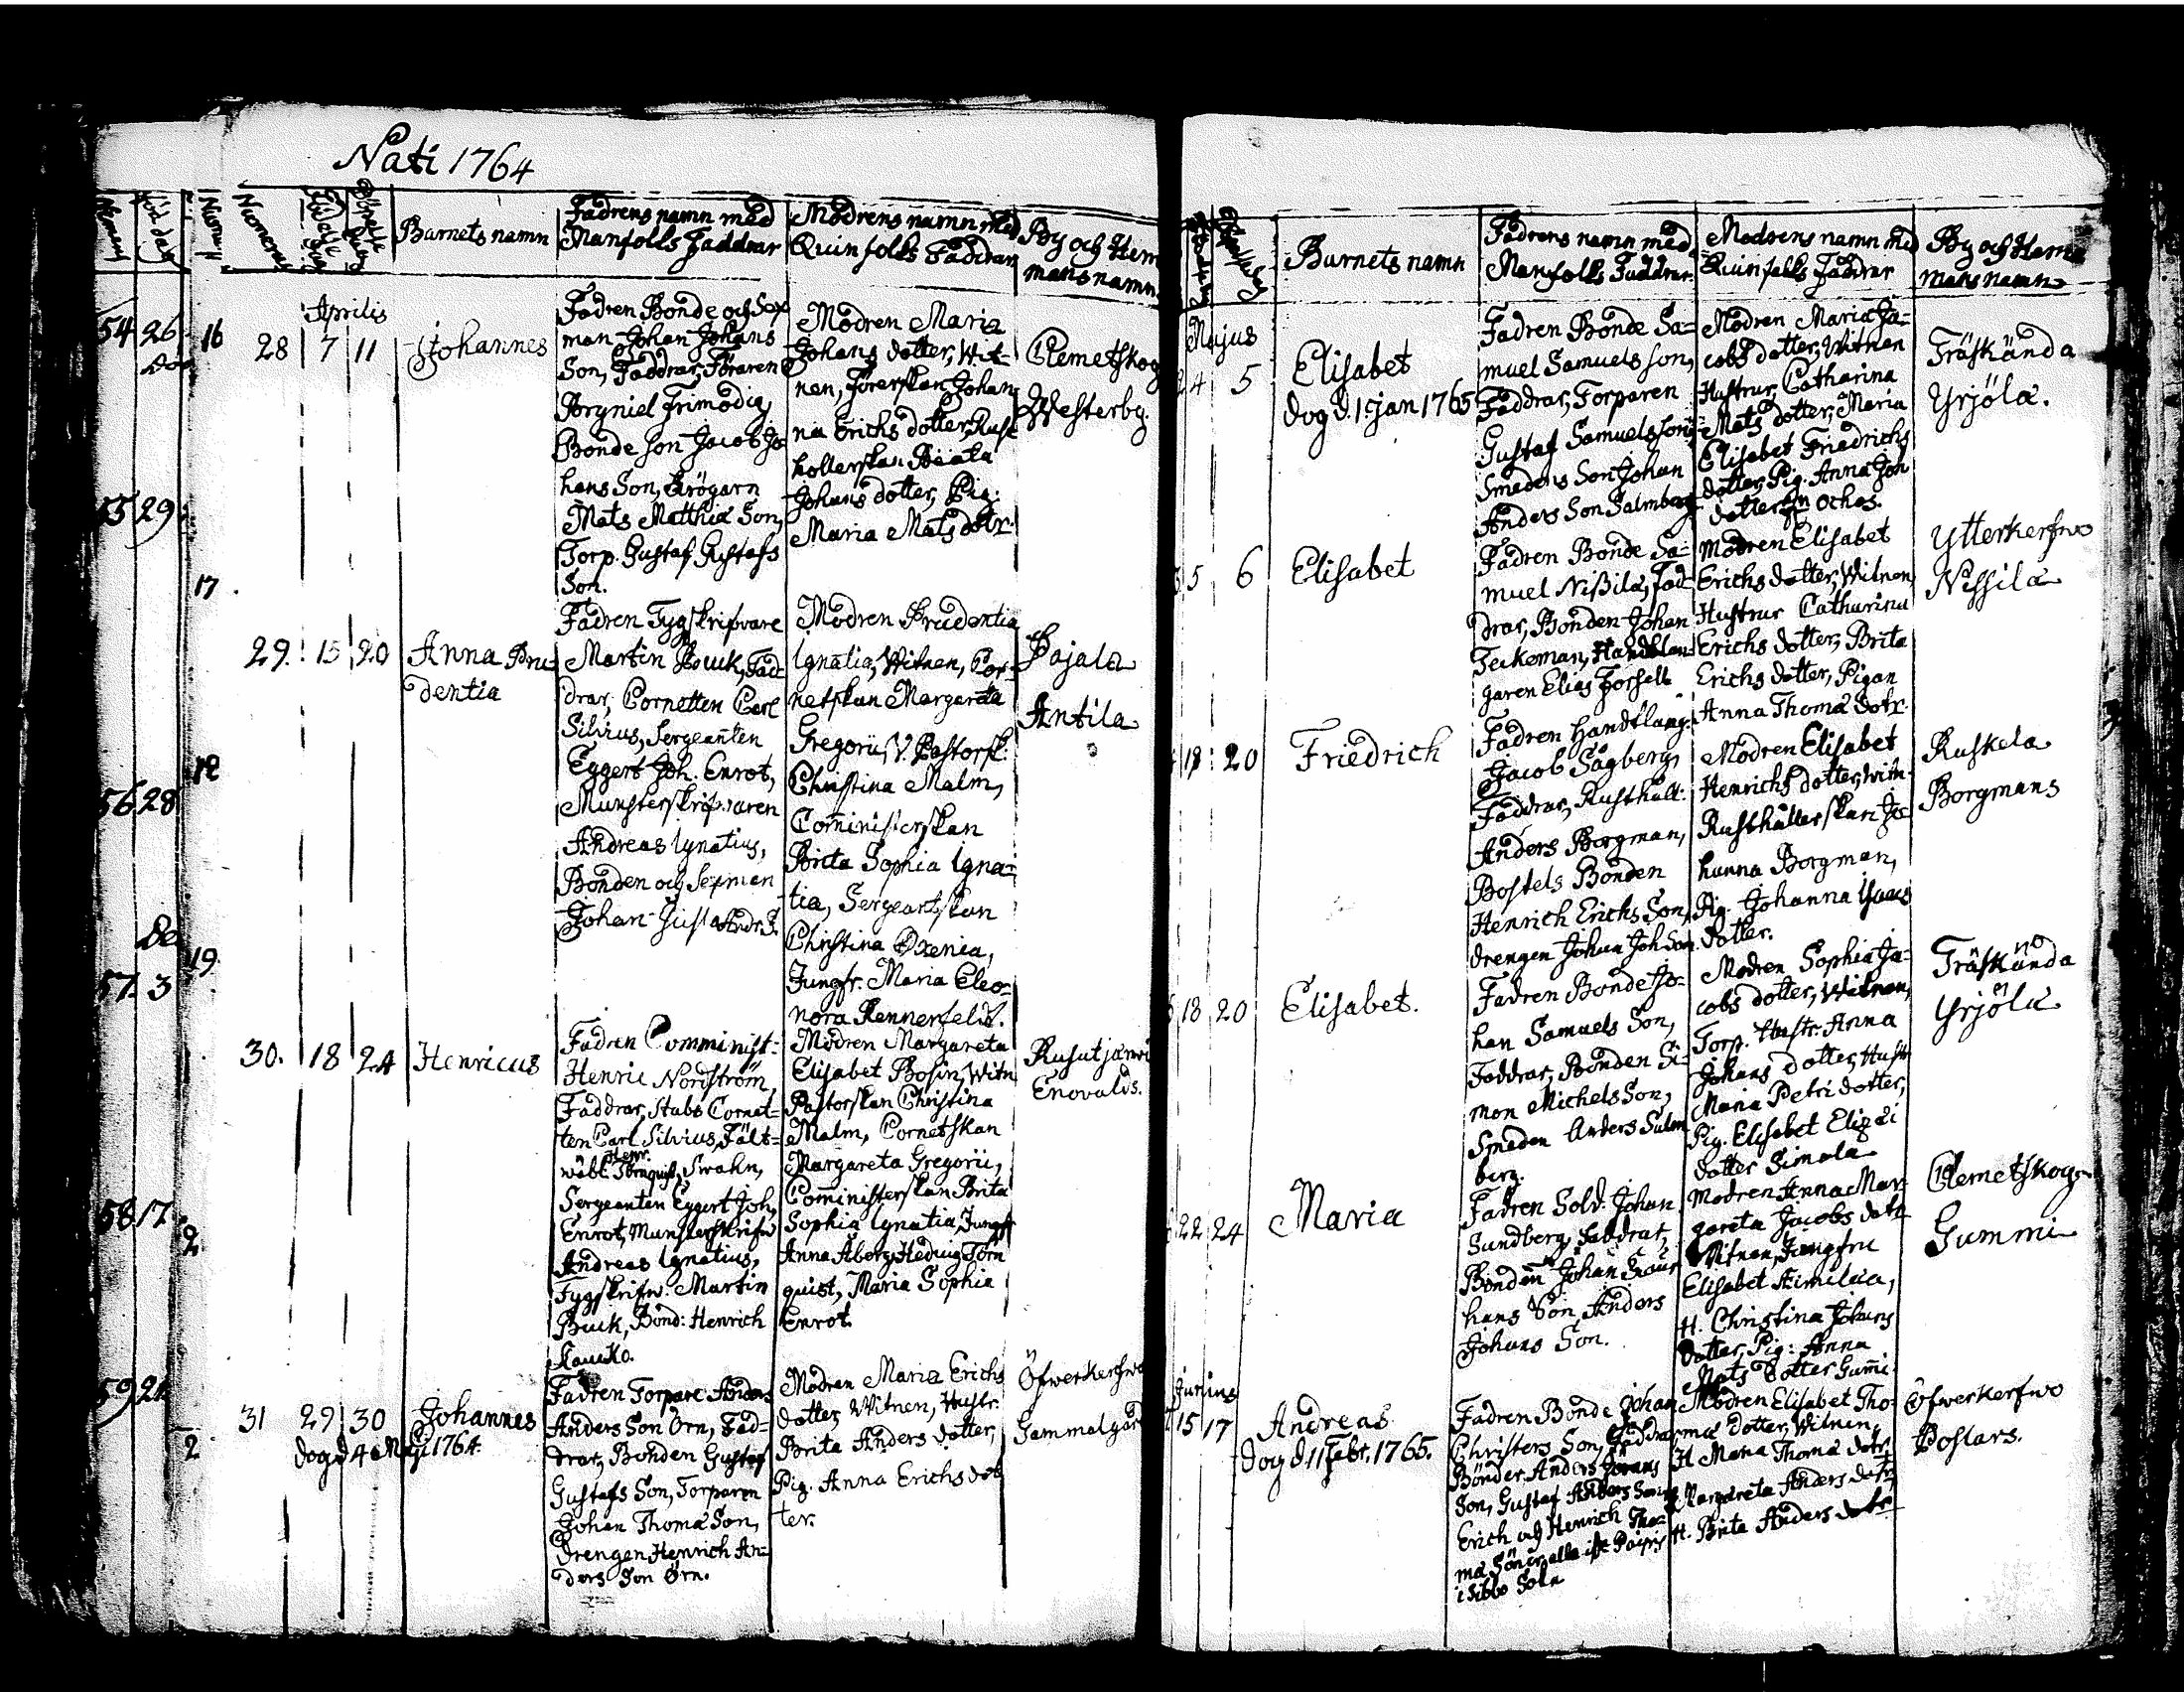 Nati 1764
Numerus
Barnets namn
Fadrens namn med
Manfolks Faddrar
Modrens namn med
Quinfolks Faddrar
By och Hem
mans namn
Aprilis
28 7 11 Johannes
Fadren Bonde och Sex
man Johan Johans
Son, Faddrar, Föraren
Bryniel Frimodig,
Bonde son Jacob Jo
hans Son, Krögarn
Mats Matthiæ Son,
Torp. Gustaf Gustafs
Son.
Modren Maria
Johans dotter, Wit-
nen, Förerskan Johan
na Erichs dotter, Rust
hollerskan Beata
Johans dotter, Pig.
Maria Mats dotr.
Clemetskog
Westerby.
29. 15 20 Anna Pru
dentia
Fadren Tygskrifvare
Martin Buuk, Fad-
drar, Cornetten Carl
Silvius, Sergeanten
Eggert Joh. Enrot,
Munsterskrifvaren
Andreas Ignatius,
Bonden och Sexman
Johan
Modren Prudentia
Ignatia, Witnen, Cor-
netskan Margareta
Gregorii, V. Pastorsk.
Christina Malm,
Coministerskan
Brita Sophia Igna-
tia, Sergeantskan
Christina Oxenia,
Jungfr. Maria Eleo-
nora Rennerfelt.
Pajala
Antila
30. 18 24 Henricus
Fadren Comminist:
Henric Nordström,
Faddrar, Stabs Cornet-
ten Carl Silvius, Fält-
wäbl. Henr. Törnquist, Swahn,
Sergeanten Eggert Joh.
Enrot, Munsterskrifv
Andreas Ignatius,
Tygskrifv. Martin
Buuk, Bond: Henrich
Modren Margareta
Elisabet Bosin, Witn
Pastorskan Christina
Malm, Cornetskan
Margareta Gregorii,
Coministerskan Brita
Sophia Ignatia, Jungfr
Anna Aberg, Hedvig Törn
quist, Maria Sophia
Enrot.
Rusutjärvi
Enovalds.
31 29 30 Johannes
dog d. 4 Maji 1764.
Fadren Torpare Anders
Anders Son Örn, Fad-
drar, Bonden Gustaf
Gustafs Son, Torparen
Johan Thomæ Son,
Drengen Henrich An-
ders Son Örn.
Modren Maria Erichs
dotter, Witnen, Hustr.
Brita Anders dotter,
Pig. Anna Erichs dot
ter.
Öfwerkerfwo
Gammalgård
54 26 16
55 29
17
56 28
19
57. 3
58 17
2
59 21
2
Barnets namn
Fadrens namn med
Manfolks Faddrar.
Modrens namn med
Quinfolks Faddrar
By och Hem
mans namn
Majus
24 5 Elisabet
dog d. 1 Jan 1765
Fadren Bonde Sa-
muel Samuels son,
Faddrar, Torparen
Gustaf Samuels son,
Smedens Son Johan
Anders Son Salmberg
Modren Maria Ja-
cobs dotter, Witnen
Hustrur, Catharina
Mats dotter, Maria
Elisabet Friedrichs
dotter, Pig. Anna Joh
Träskända
Yrjölä.
5 6 Elisabet
Fadren Bonde Sa-
muel Nißilä, Fad-
drar, Bonden Johan
Teikeman, Handtlan
garen Elias Forsell
Modren Elisabet
Erichs dotter, Witnen
Hustrur Catharina
Erichs dotter, Brita
Erichs dotter, Pigan
Anna Thomæ dotr.
Ytterkerfwo
Nissilä
18 20 Friedrich
Fadren Handtlang.
Jacob Sågberg,
Faddrar, Rusthåll:
Anders Borgman,
Bostels Bonden
Henrich Erichs Son,
drengen Johan Joh Son
Modren Elisabet
Henrichs dotter, Witn.
Rusthållerskan Jo-
hanna Borgman,
Pig. Johanna Isaacs
dotter.
Ruskela
Borgmans
18 20 Elisabet.
Fadren Bonde Jo-
han Samuels Son,
Faddrar, Bonden Si-
mon Michels Son,
Smeden Anders Salm
berg.
Modren Sophia Ja-
cobs dotter, Witnen,
Torp. Hustr. Anna
Johans dotter, Hustr
Maria Petri dotter,
Pig. Elisabet Eliæ
dotter Simola
Träskända
Yrjölä
22 24 Maria
Fadren Sold. Johan
Sundberg, Faddrar,
Bonden Johan
hans Son, Anders
Johans Son.
Modren Anna Mar-
gareta Jacobs dotr
Witnen, Jungfru
Elisabet
H. Christina Johans
Dotter, Pig: Anna
Mats Dotter Gumi.
Clemetskog.
Gummi
Junius
15 17 Andreas
dog d. 11 Febr. 1765.
Fadren Bonde Johan
Christers Son, Faddrar
Bönder, Anders Jörans
Son, Gustaf Anders Son,
Erich och Henrich Tho-
mæ Söner alla
i Sibbo Soln
Modren Elisabet Tho-
mæ dotter, Witnen,
H. Maria Thomæ dotr
Margareta Anders dotr,
H. Brita Anders dotr
Öfwerkerfwo
Postars.